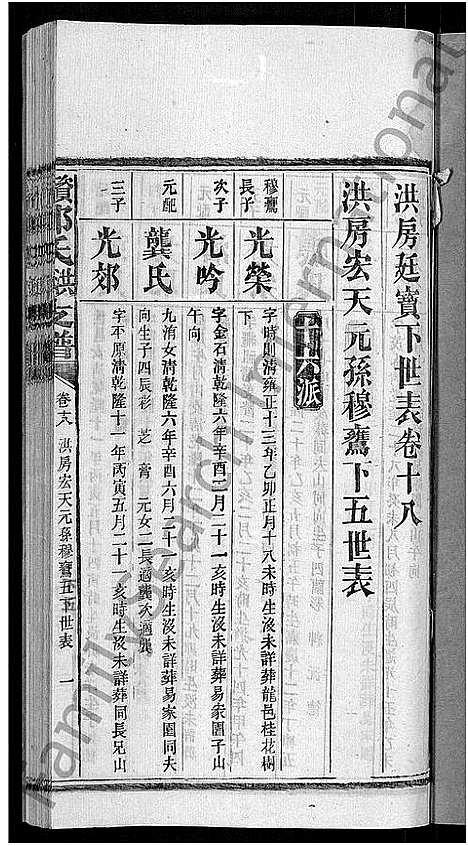 洪房廷寶下世表卷十八
洪房宏天元孫穆鶱下五世表
穆鶱長子
光榮
字時則淸雍正十三年乙卯正月十八未時生沒未詳葬龍邑桂花樹下
次子
光吟
字金石淸乾隆六年辛酉二月二十一亥時生沒未詳葬易家園子山午向
元配
龔氏
九洧女淸乾隆六年辛酉六月二十一亥時生沒未詳葬易家園同夫向生子四辰彩 芝 膏 元女二長適龔次適
三子
光郊
字不原淸乾隆十一年丙寅五月二十一亥時生沒未詳葬同長兄山
氏洪之譜
卷十八
洪房宏天元孫穆鶱下五世表
一
familysearch International